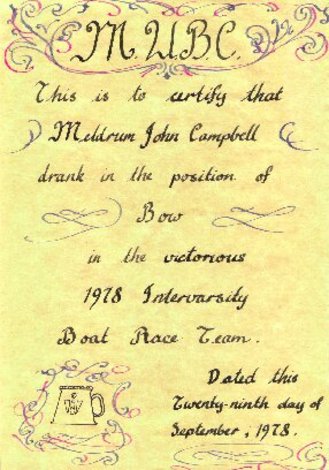 M.U.B.C.
This is to certify that
Meldrum John Campbell
drank in the position of
Bow
in the victorious
1978 Intervarsity
Boat Race Team.
Dated this
Twenty-ninth day of
September, 1978.